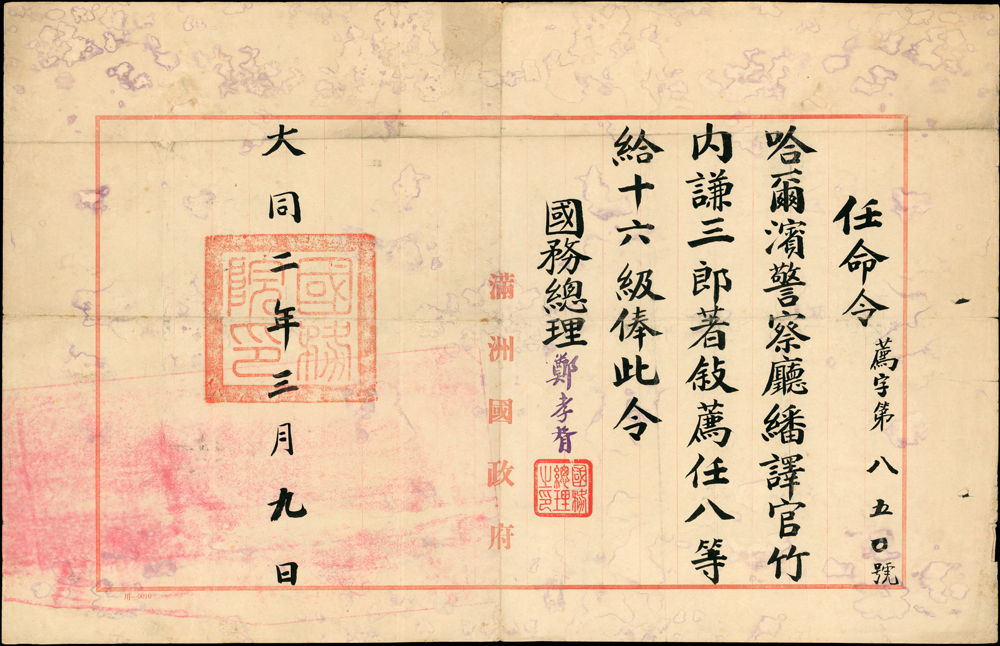 任命令 薦字第八五〇號
哈爾濱警察廳繙譯官竹
内謙三郎著敍薦任八等
給十六級俸此令
國務總理鄭孝胥
國務總理之印
滿洲國政府
大同二年三月九日
國務院印